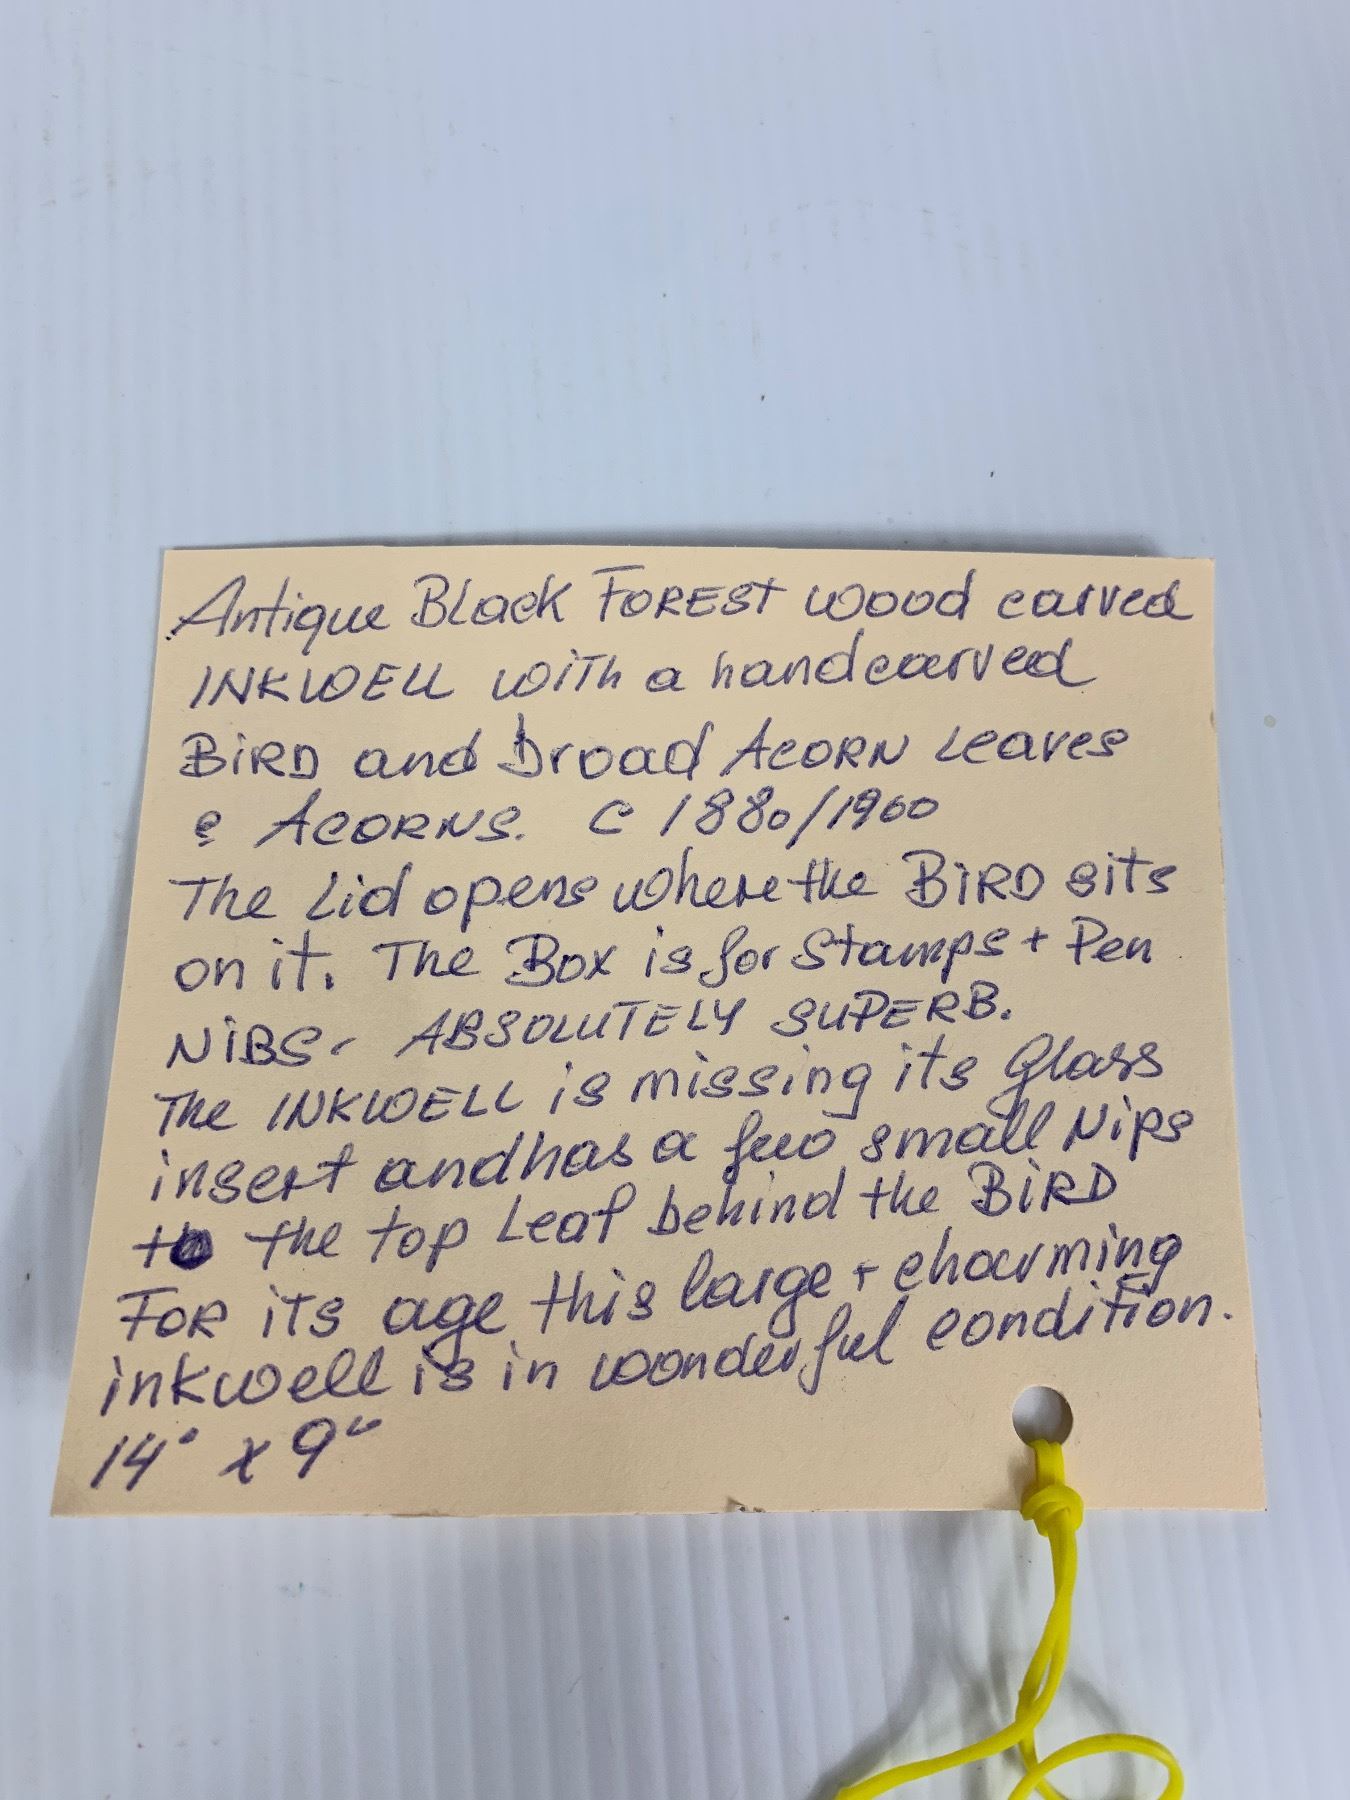 Antique Black FOREST wood carved
INKWELL with a handcarved
BIRD and broad ACORN Leaves
& ACORNS. C 1880/1900
The Lid opens where the BIRD sits
on it. The Box is for Stamps + Pen
NIBS. ABSOLUTELY SUPERB.
The INKWELL is missing its Glass
insert and has a few small Nips
to the top Leaf behind the BIRD
FOR its age this large + charming
inkwell is in wonderful condition.
14" x 9"